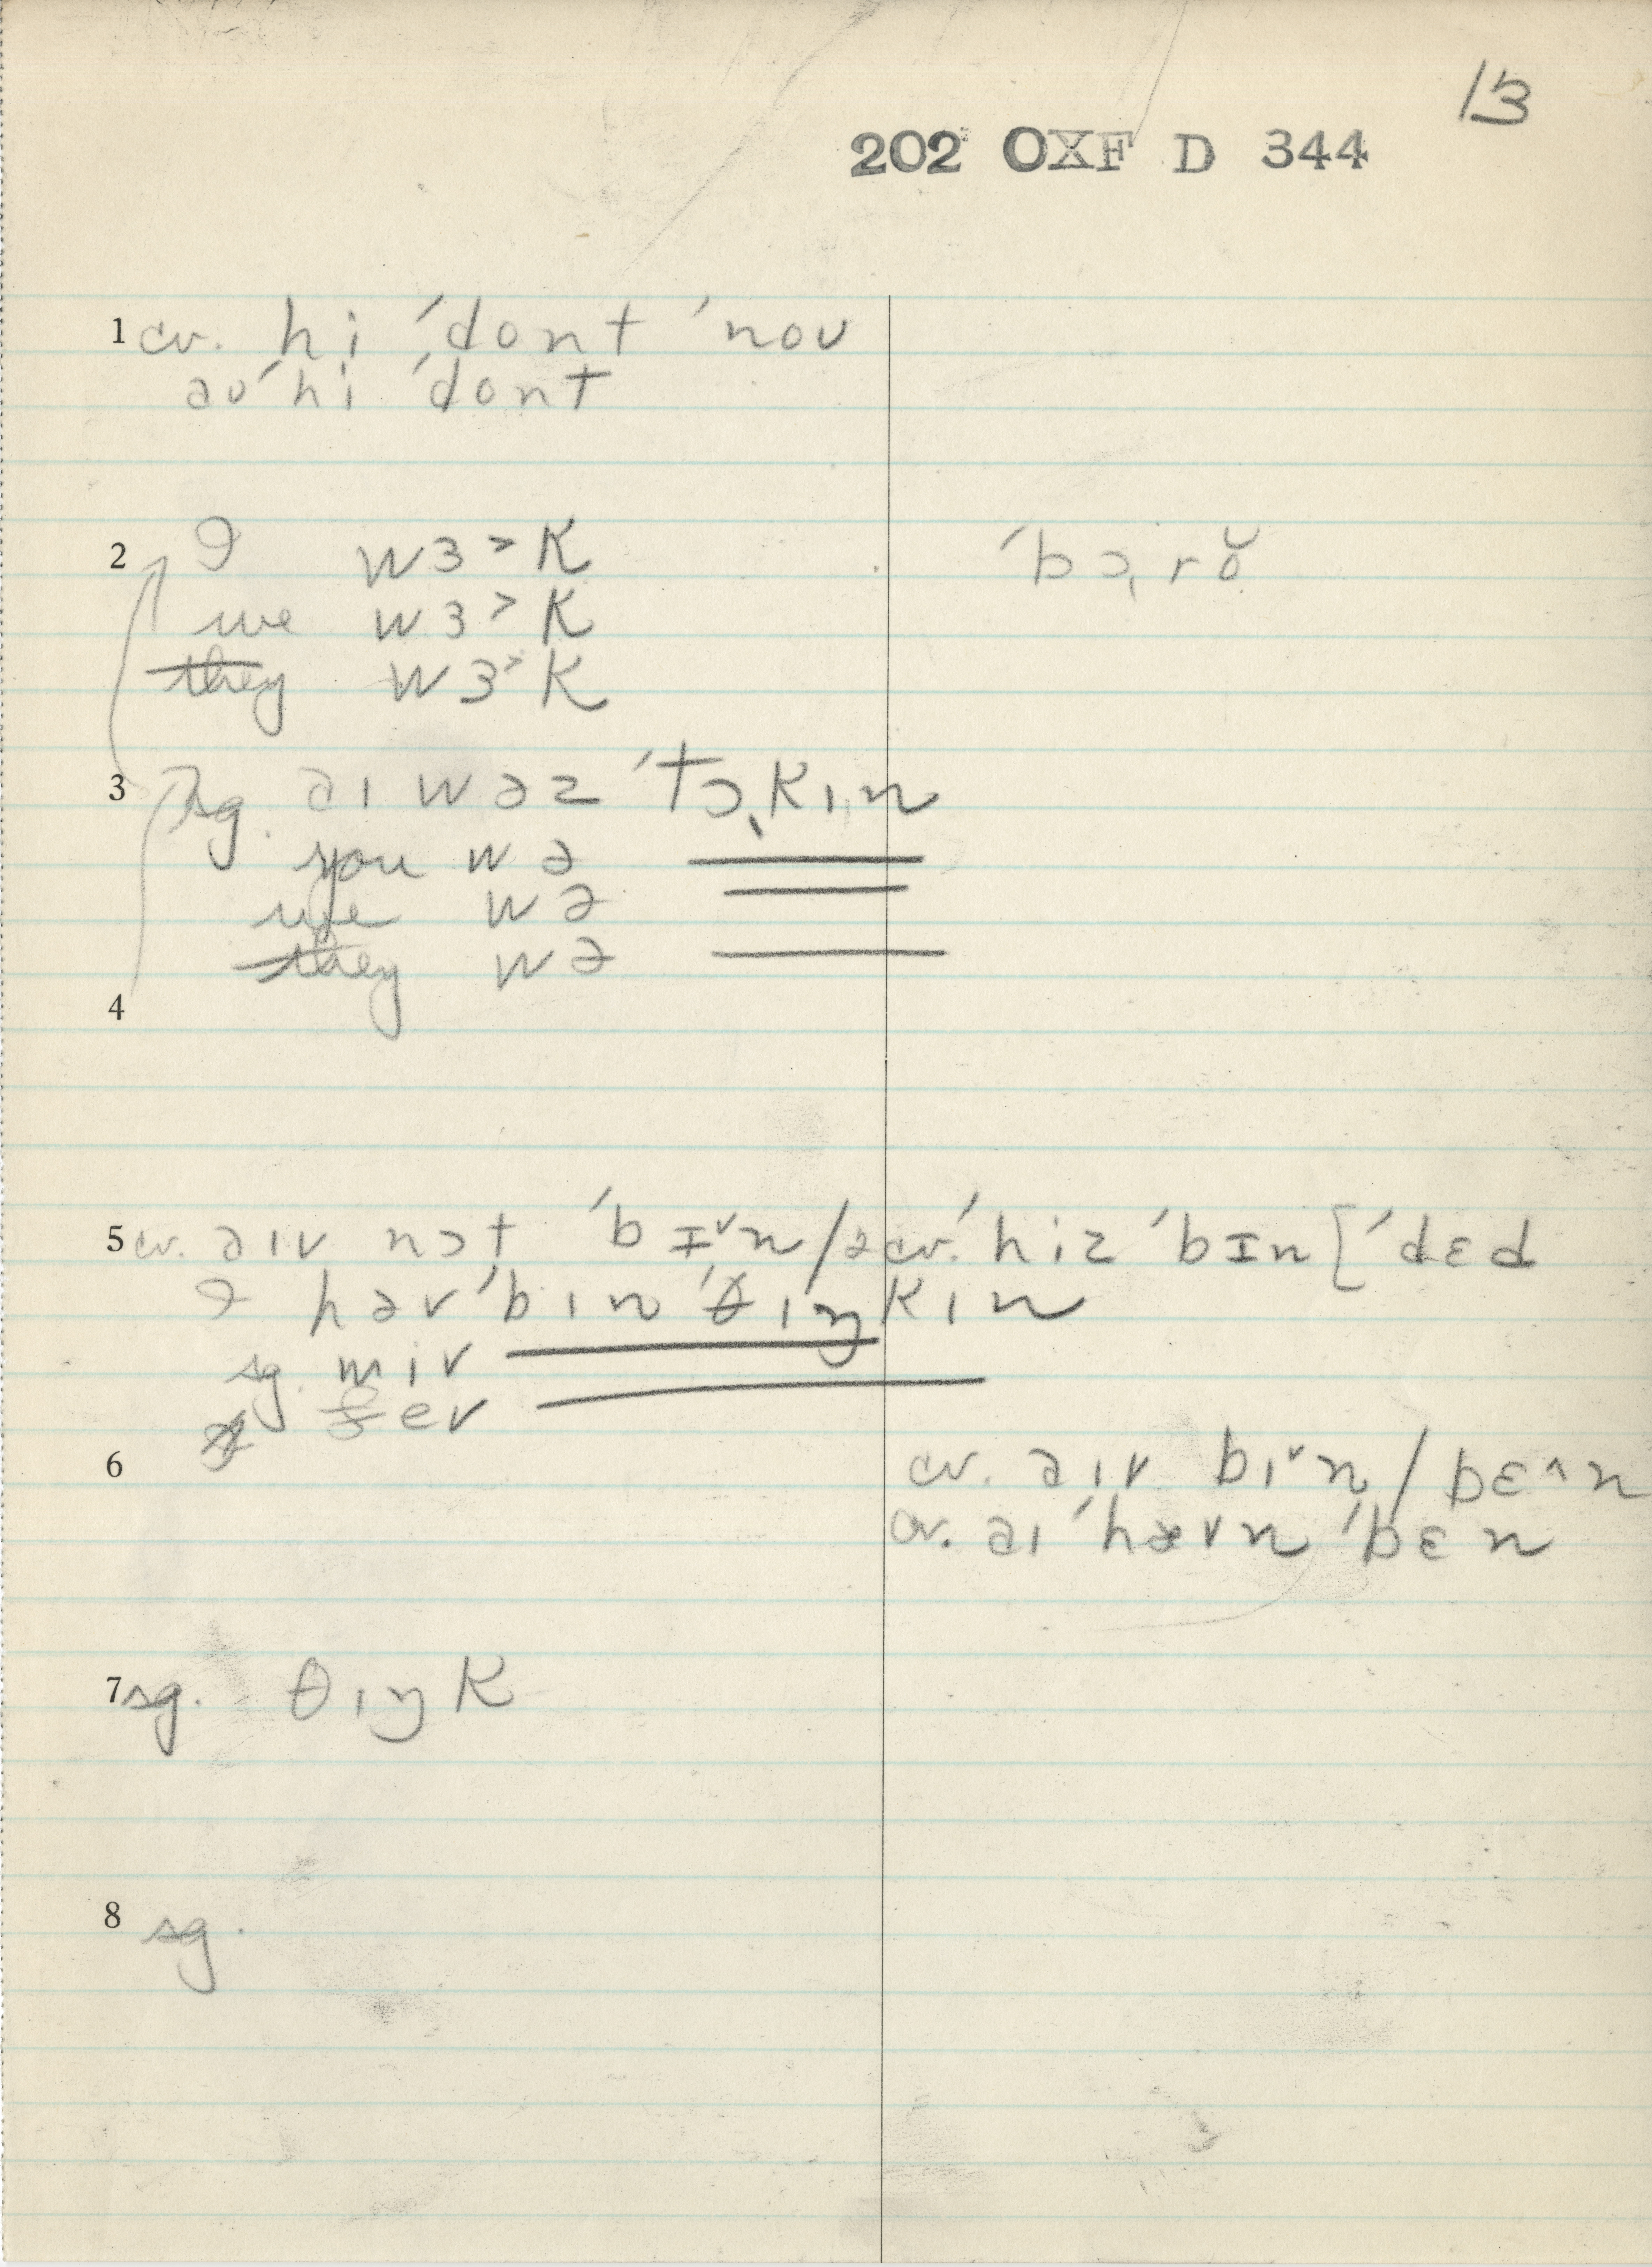 13
202 OXF D 344
1 cv. hi ˈdont ˈnoʊ
əʊ ˈhi ˈdont
2 I wɜ˃k ˈbɔ˛rŏ
we wɜ˃k
they wɜ˃k
3 sg. əɪ wəz ˈtɔ˛kɪn
you wə
we wə
they wə
4
5 cv. əɪv nɔt ˈbɪ˅n / cv. ˈhiz ˈbɪn [ˈdɛd
I həv ˈbɪn ˈθɪŋkɪn
sg. wiv
ðev
6 cv. əɪv bɪ˅n / bɛ˄n
cv. əɪ ˈhævn ˈbɛn
7 sg. θɪŋk
8 sg.